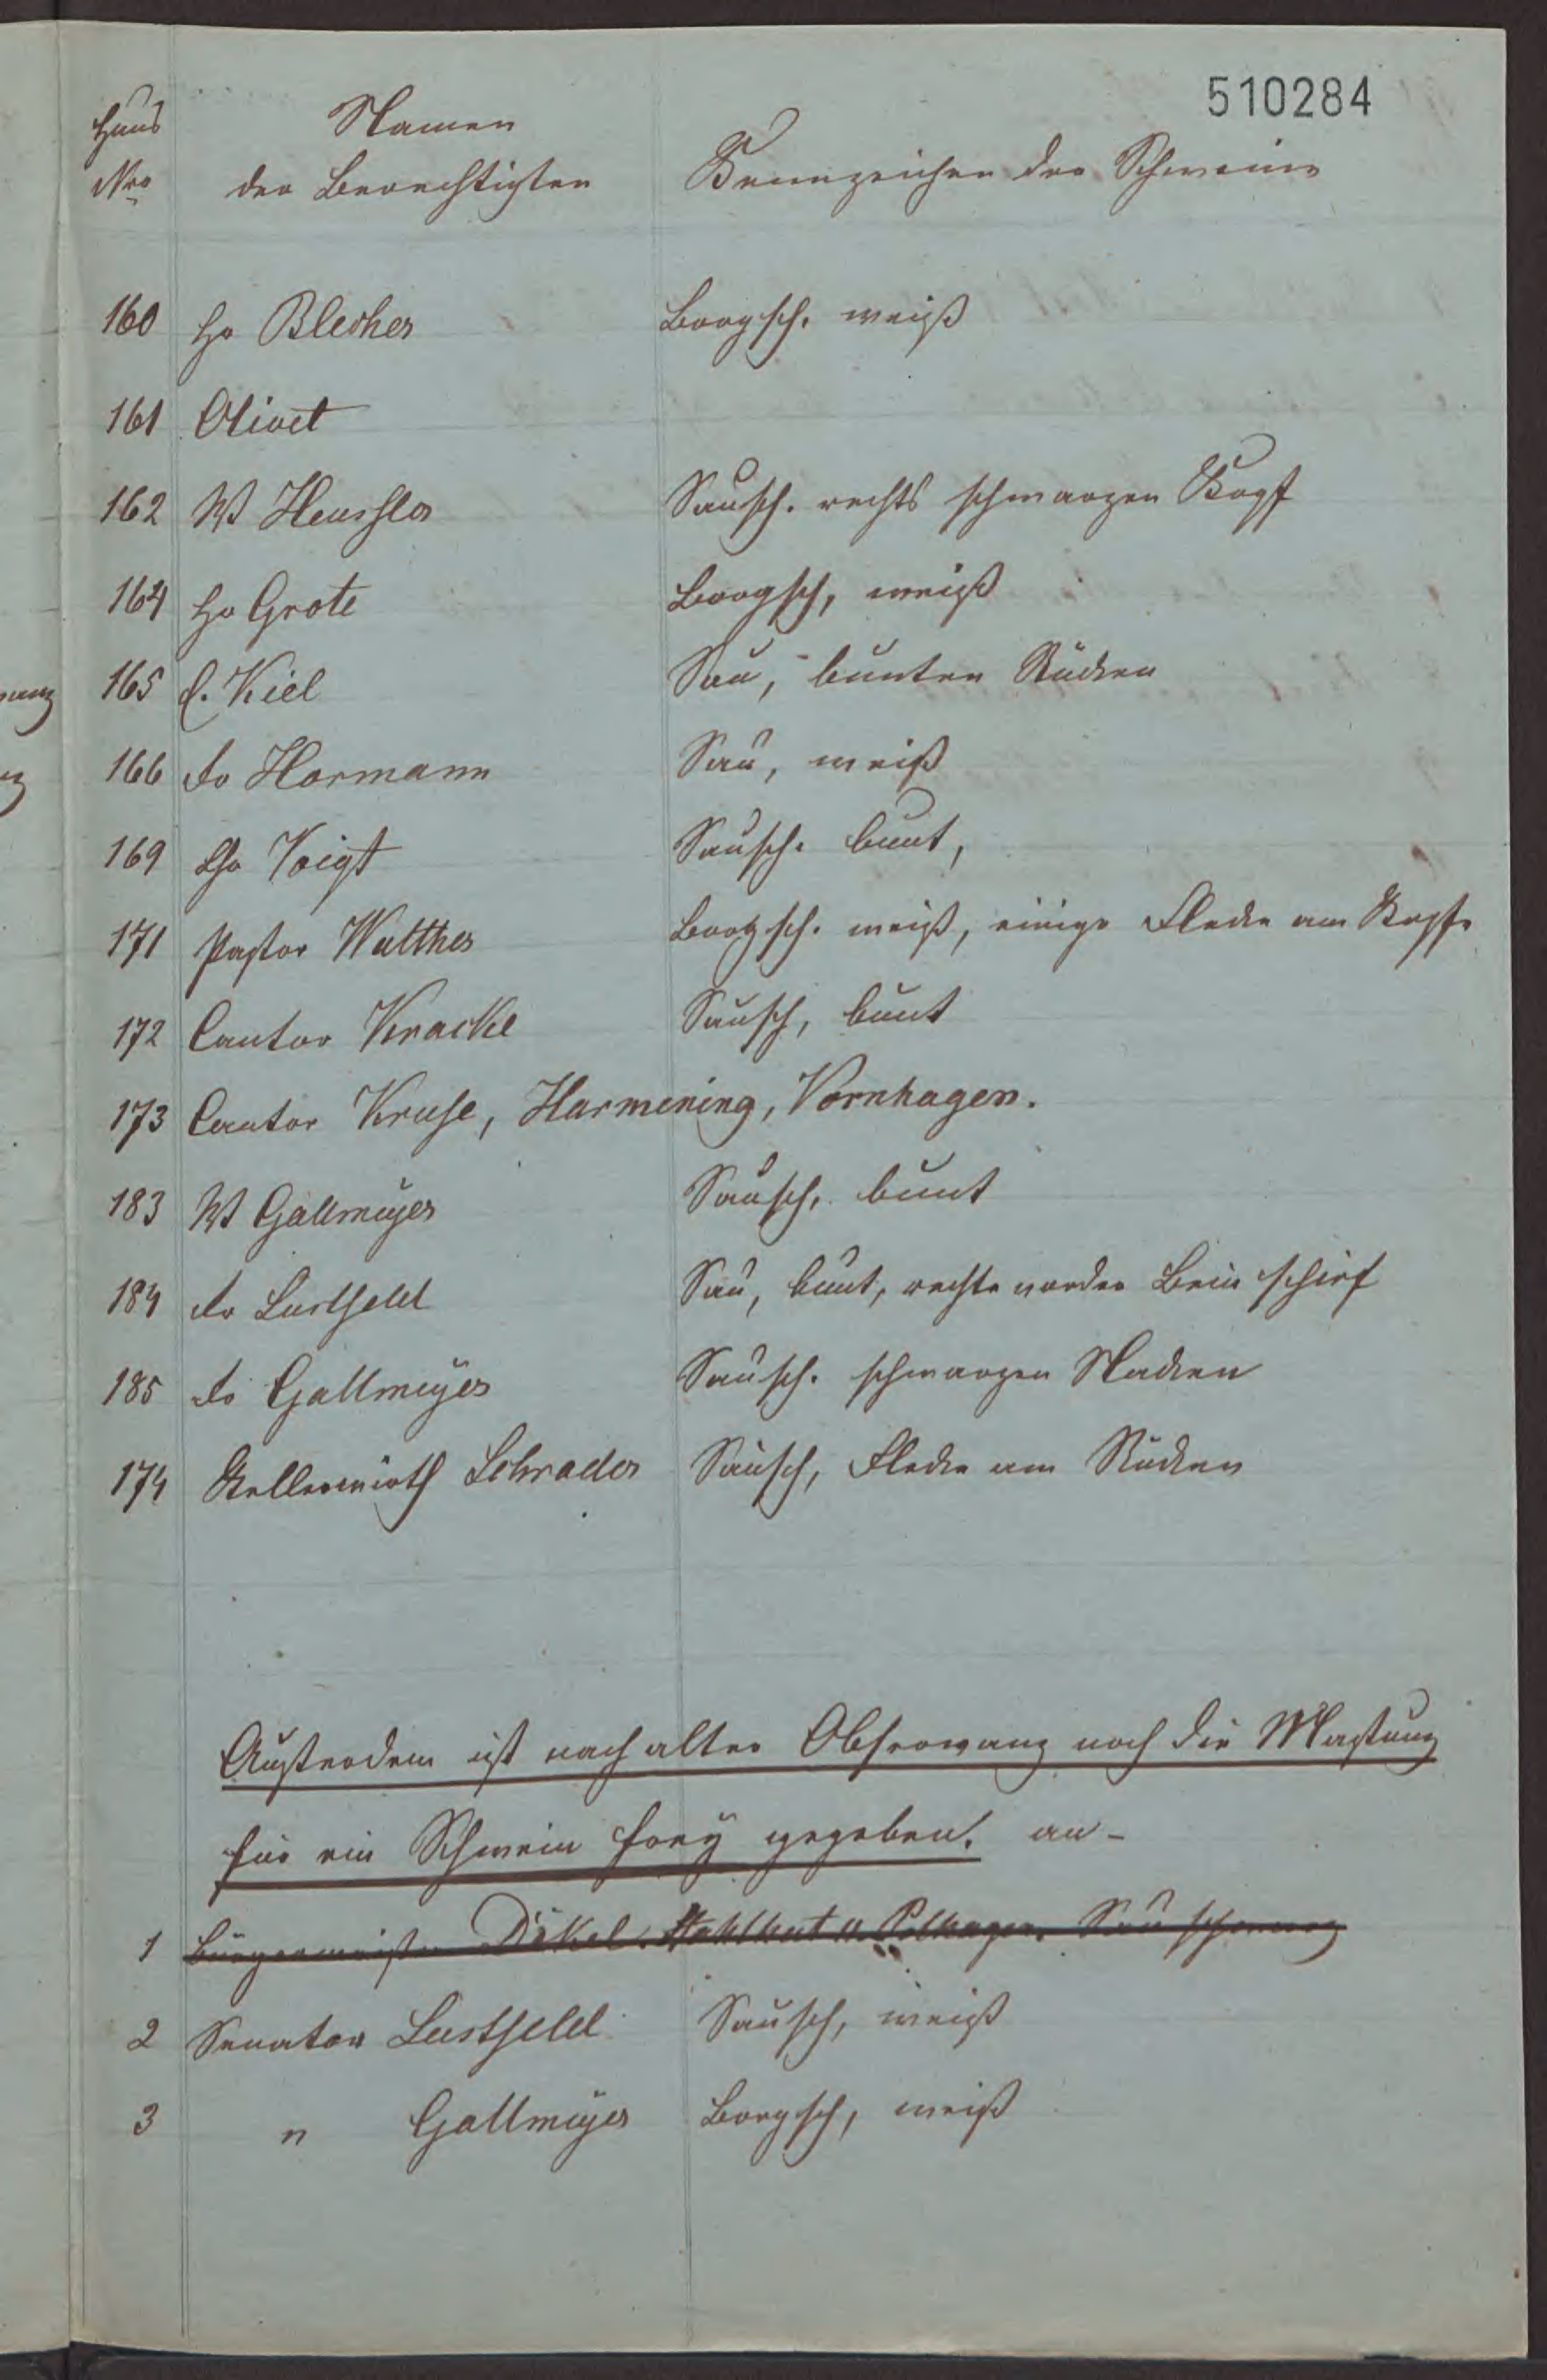 510284
Haus Namen
Nro der Berechtigten Kennzeichen der Schweine
160 Hr Blecher Borgsch. weiß
161 Olivet
162 W Heusler Sausch. rechts schwarzen Kopf
164 Hr Grote Borgsch, weiß
165 C. Kiel Sau, bunten Rücken
166 Hormann Sau, weiß
169 Voigt Sausch. bunt,
171 Pastor Walther Borgsch. weiß, einige Flecke am Kopfe
172 Cantor Kracke Sausch, bunt
173 Cantor Kruse, Harmening, Vornhagen.
183 W Gallmeÿer Sausch, bunt
184 Lustfeld Sau, bunt, rechte vorder Bein schief
185 Gallmeÿer Sausch. schwarzen Nacken
174 Kellerwirth Schrader Sausch, Flecke am Rücken
Außerdem ist nach alter Observanz noch die Mastung
für ein Schwein freÿ gegeben. an-
1 Bürgermeister Dökel. Stahlhut u. Polhagen. Sau schwarz
2 Senator Lustfeld Sausch, weiß
3 " Gallmeÿer Borgsch, weiß